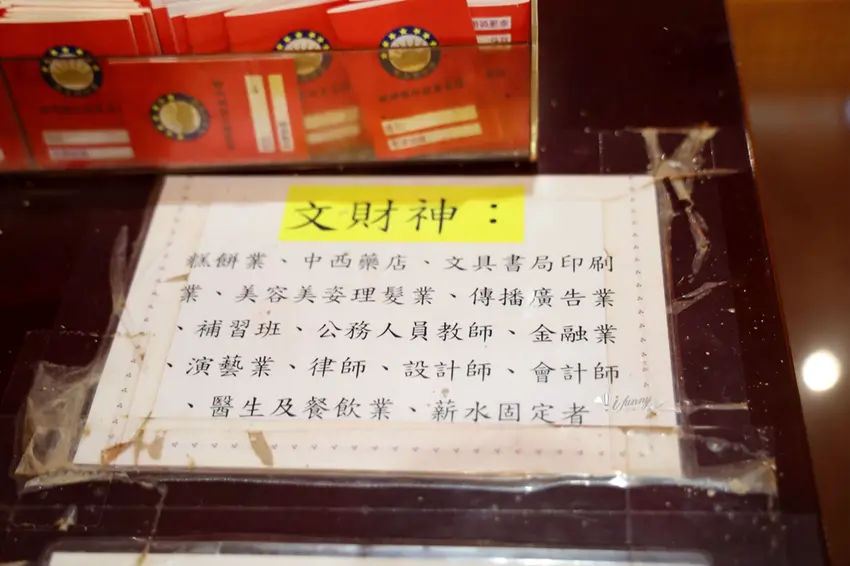 文財神：
糕餅業、中西藥店、文具書局印刷
業、美容美姿理髮業、傳播廣告業
、補習班、公務人員教師、金融業
、演藝業、律師、設計師、會計師
、醫生及餐飲業、薪水固定者
i funny